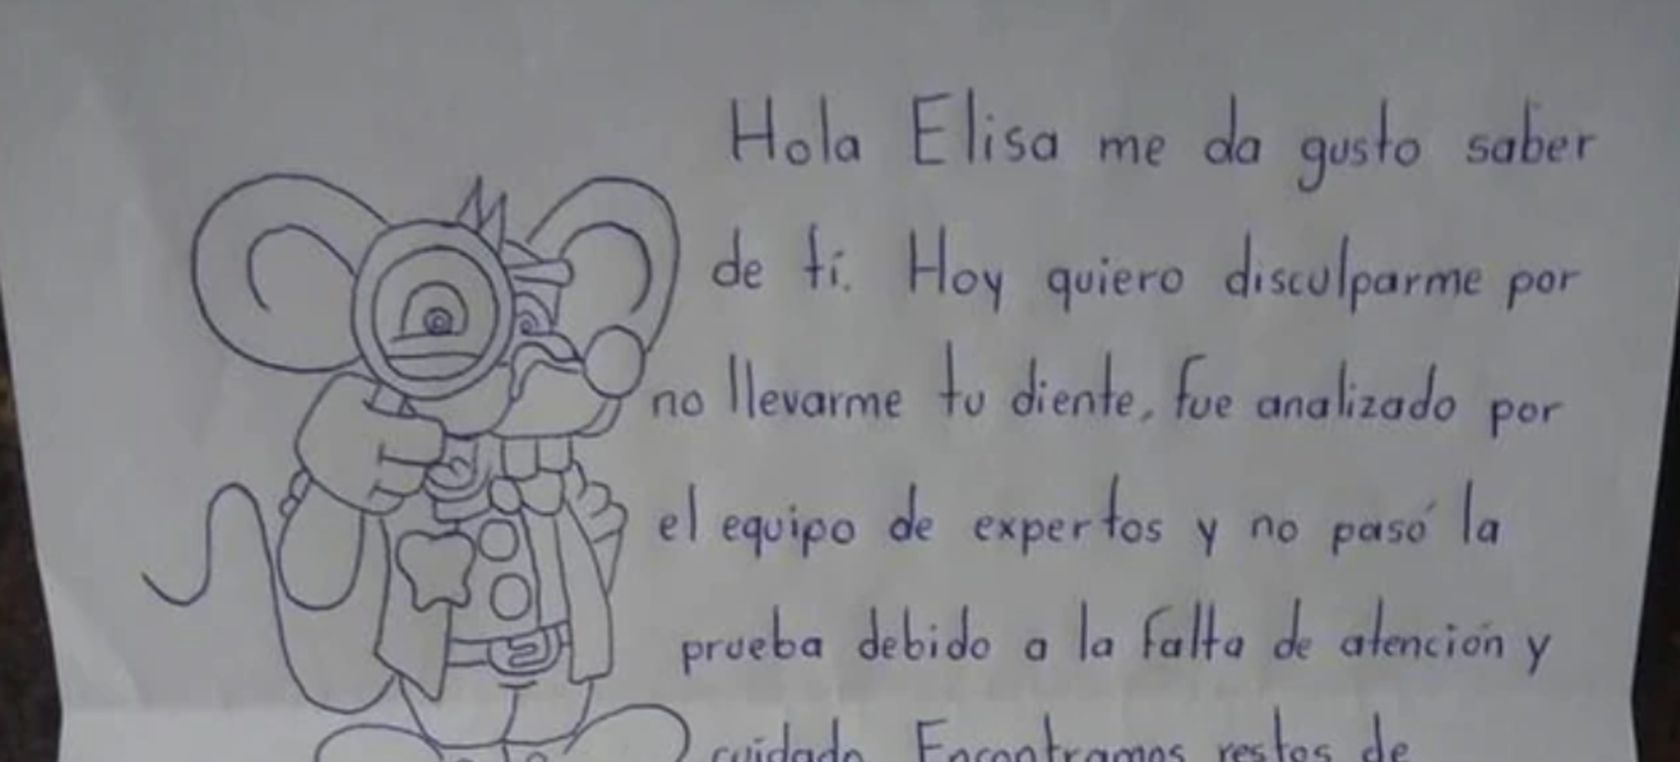 Hola Elisa me da gusto saber
de ti. Hoy quiero disculparme por
no llevarme tu diente, fue analizado por
el equipo de expertos y no pasó la
prueba debido a la falta de atención y
cuidado. Encontramos restos de